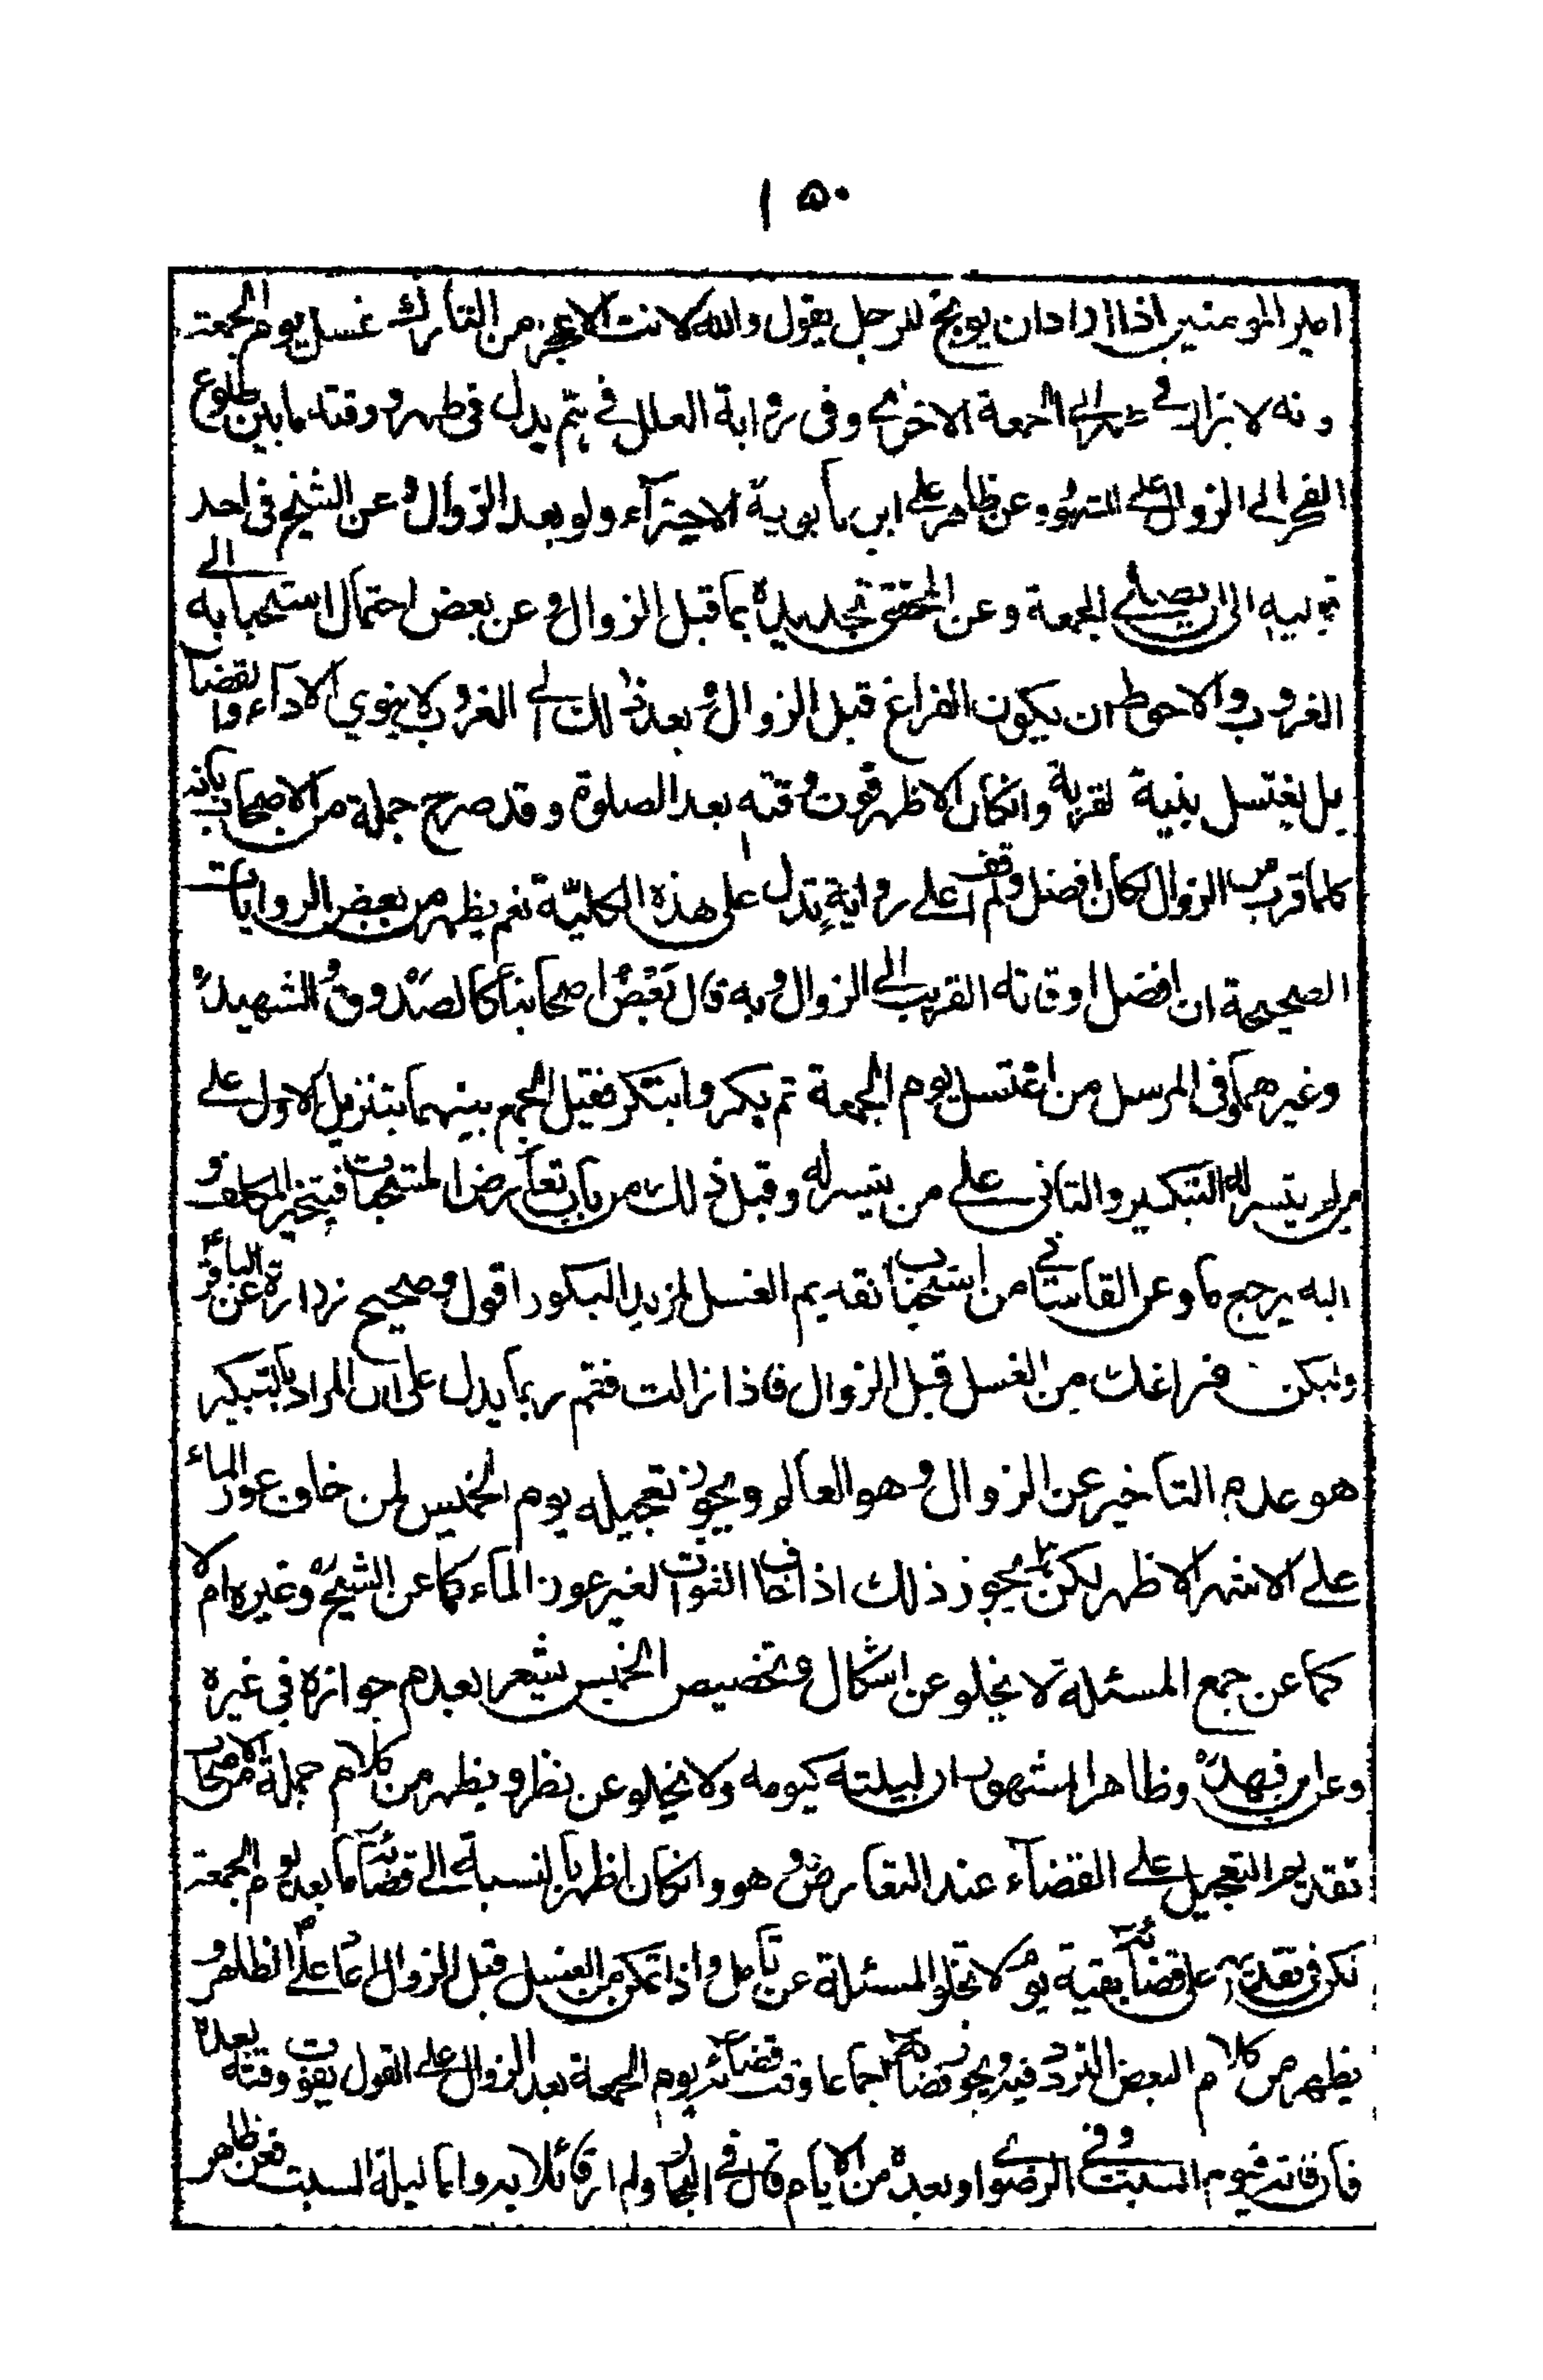 ١٥٠
امير المؤمنين اذا اراد ان يوبخ الرجل يقول والله لانت الاعجز من التارك غسل يوم الجمعة
وانه لا يزال في طهر الى الجمعة الاخرى وفى رواية العلل في يتم يدل في طهر ووقته ما بين طلوع
الفجر الى الزوال على المشهور وعن ظاهر على ابن بابويه الاجتزآء ولو بعد الزوال وعن الشيخ فى احد
قوليه الى ان يصلى الجمعة وعن المحقق تحديده بما قبل الزوال وعن بعض احتمال استحبابه الى
الغروب والاحوط ان يكون الفراغ قبل الزوال وبعد ذلك الى الغروب لا ينوي الادآء والقضآء
بل يغتسل بنية القربة وان كان الاظهر فوت وقته بعد الصلوة وقد صرح جملة من الاصحاب بانه
كلما قرب من الزوال كان افضل ولم اقف على رواية تدل على هذه الكلية نعم يظهر من بعض الروايات
الصحيحة ان افضل اوقاته القريب الى الزوال وبه قال بعض اصحابنا كالصدوق والشهيد
وغيرهما وفى المرسل من اغتسل يوم الجمعة ثم بكر وابتكر فقيل الجمع بينهما بتنزيل الاول على
من لم يتيسر له التبكير والثانى على من يتيسر له وقيل ذلك من باب تعارض المستحبات فيتخير المكلف و
اليه يرجع ما عن القاساني من استحباب تقديم الغسل لمزيد البكور اقول وصحيح زرارة عن الباقر
وليكن فراغك من الغسل قبل الزوال فاذا زالت فقم ربما يدل على ان المراد بالتبكير
هو عدم التاخير عن الزوال وهو العالم ويجوز تعجيله يوم الخميس لمن خاف عوز المآء
على الاشهر الاظهر لكن هل يجوز ذلك اذا خاف الفوات لغير عوز المآء كما عن الشيخ وغيره ام لا
كما عن جمع المسئلة لا يخلو عن اشكال وتخصيص الخميس يشعر بعدم جوازه فى غيره
وعن ابن فهد وظاهر المشهور ان ليلته كيومه ولا يخلو عن نظر ويظهر من كلام جملة من الاصحاب
تقديم التعجيل على القضآء عند التعارض وهو وان كان اظهر بالنسبة الى قضآئه ما بعد يوم الجمعة
لكن فى تقديمه على قضآئه بقية يومه لا تخلو المسئلة عن تامل واذا تمكن من الغسل قبل الزوال اعاد على الظاهر و
يظهر من كلام البعض التردد فيه ويجوز قضآئه اجماعا وقت قضائه يوم الجمعة بعد الزوال على القول بفوت وقته بعده
فان فاته فيوم السبت وفي الرضوى او بعده من الايام قال في البحار ولم ار قائلا به واما ليلة السبت فعن ظاهر